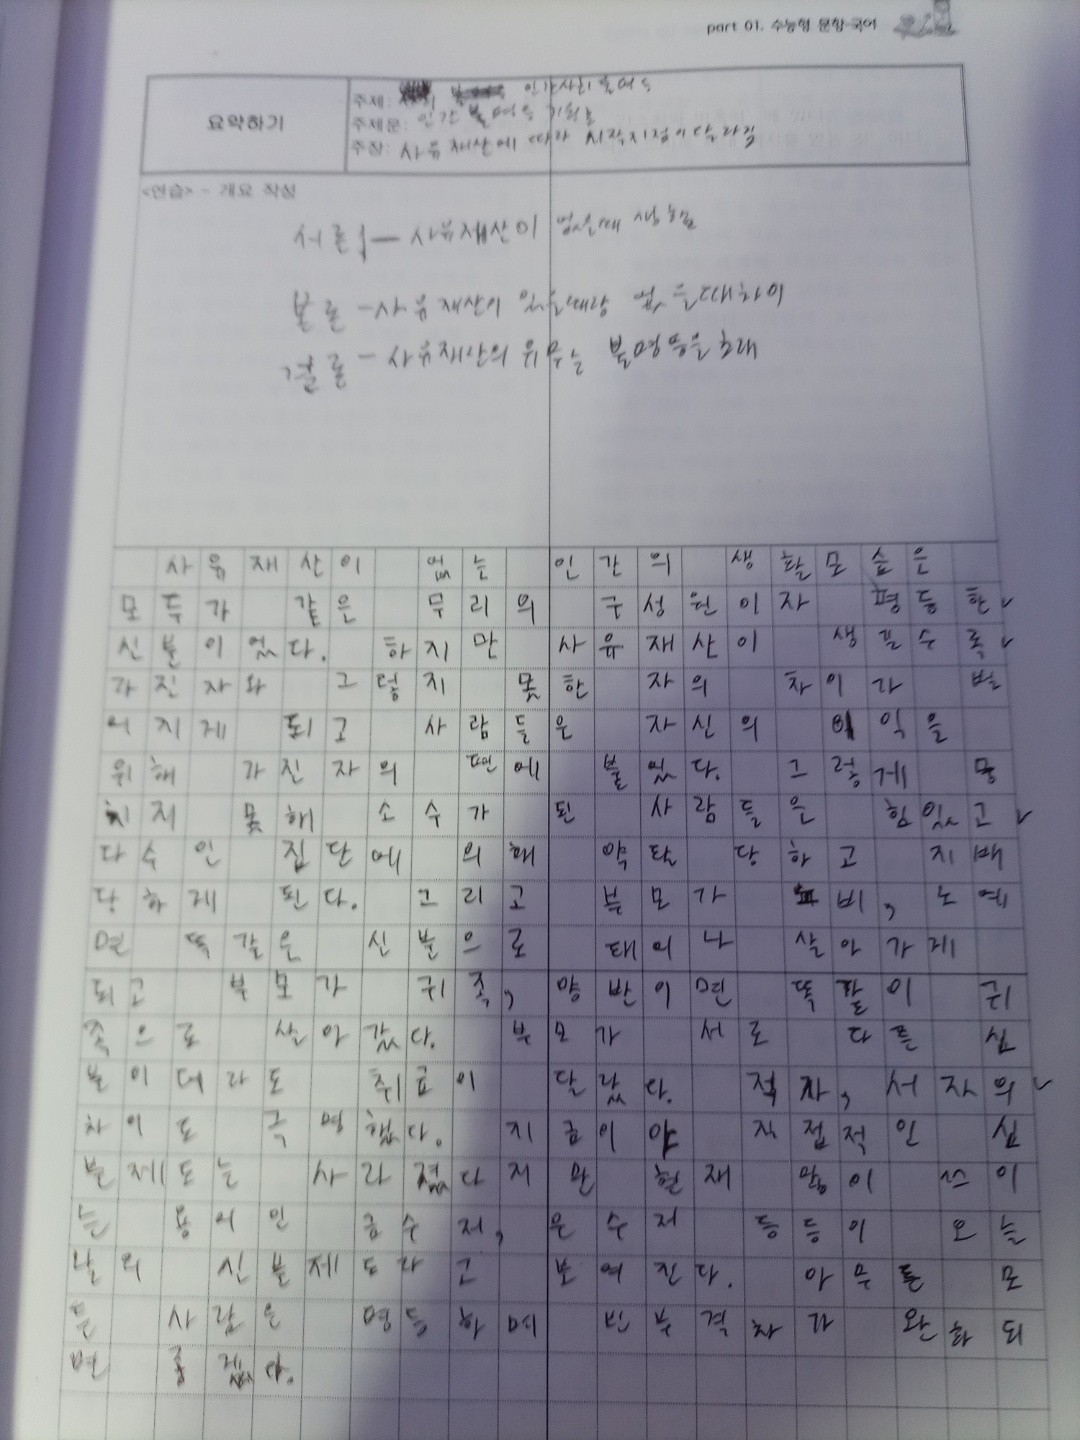 part 01. 수능형 문항-국어
요약하기
주제: 인간사회 불평등
주제문: 인간 불평등 기원
주장: 사유재산에 따라 시작지점이 달라짐
<연습> - 개요 작성
서론 - 사유재산이 없을때 생활
본론 - 사유재산이 있을때랑 없을때차이
결론 - 사유재산의 유무는 불평등을초래
사유재산이 없는 인간의 생활모습은
모두가 같은 무리의 구성원이자 평등한
신분이었다. 하지만 사유재산이 생길수록
가진자와 그렇지 못한 자의 차이가 벌
어지게 되고 사람들은 자신의 이익을
위해 가진자의 편에 붙었다. 그렇게 뭉
치지 못해 소수가 된 사람들은 힘있고
다수인 집단에 의해 약탈 당하고 지배
당하게 된다. 그리고 부모가 노비, 노예
면 똑같은 신분으로 태어나 살아가게
되고 부모가 귀족, 양반이면 똑같이 귀
족으로 살아갔다. 부모가 서로 다른 신
분이더라도 취급이 달랐다. 적자, 서자의
차이도 극명했다. 지금이야 직접적인 신
분제도는 사라졌다지만 현재 많이 쓰이
는 용어인 금수저, 은수저 등등이 오늘
날의 신분제도라고 보여진다. 아무튼 모
든 사람은 평등하며 빈부격차가 완화되
면 좋겠다.